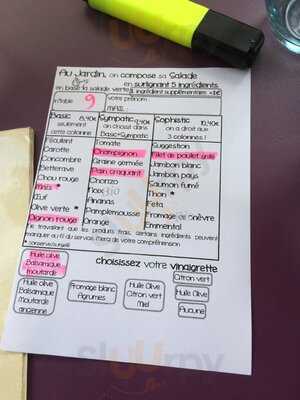 Au Jardin, on compose sa Salade
en surlignant 5 ingrédients
en base la salade verte
1 ingrédient supplémentaire =1€
n°table
9
votre prénom :
Basic 8,40€
seulement
cette colonne
Sympatic 9,40€
on choisi dans
Basic+Sympatic
Sophistic 10,40€
on a droit aux
3 colonnes!
Féculent
Carotte
Concombre
Betterave
Chou rouge
Maïs *
Œuf
Olive verte *
Oignon rouge
Tomate
Champignon
Graine germée
Pain craquant
Chorizo
Noix
Ananas
Pamplemousse
Orange
Suggestion
Filet de poulet grillé
Jambon blanc
Jambon pays
Saumon fumé
Thon *
Feta
Fromage de chèvre
Emmental
Ne travaillant que les produits frais, certains ingrédients peuvent
manquer au fil du service. Merci de votre compréhension
* conserve/surgelé
choisissez votre vinaigrette
Huile olive
Balsamique
moutarde
Huile olive
Balsamique
Moutarde
ancienne
Fromage blanc
Agrumes
Huile olive
Citron vert
Miel
Citron vert
Huile Olive
Aucune
sluurpy